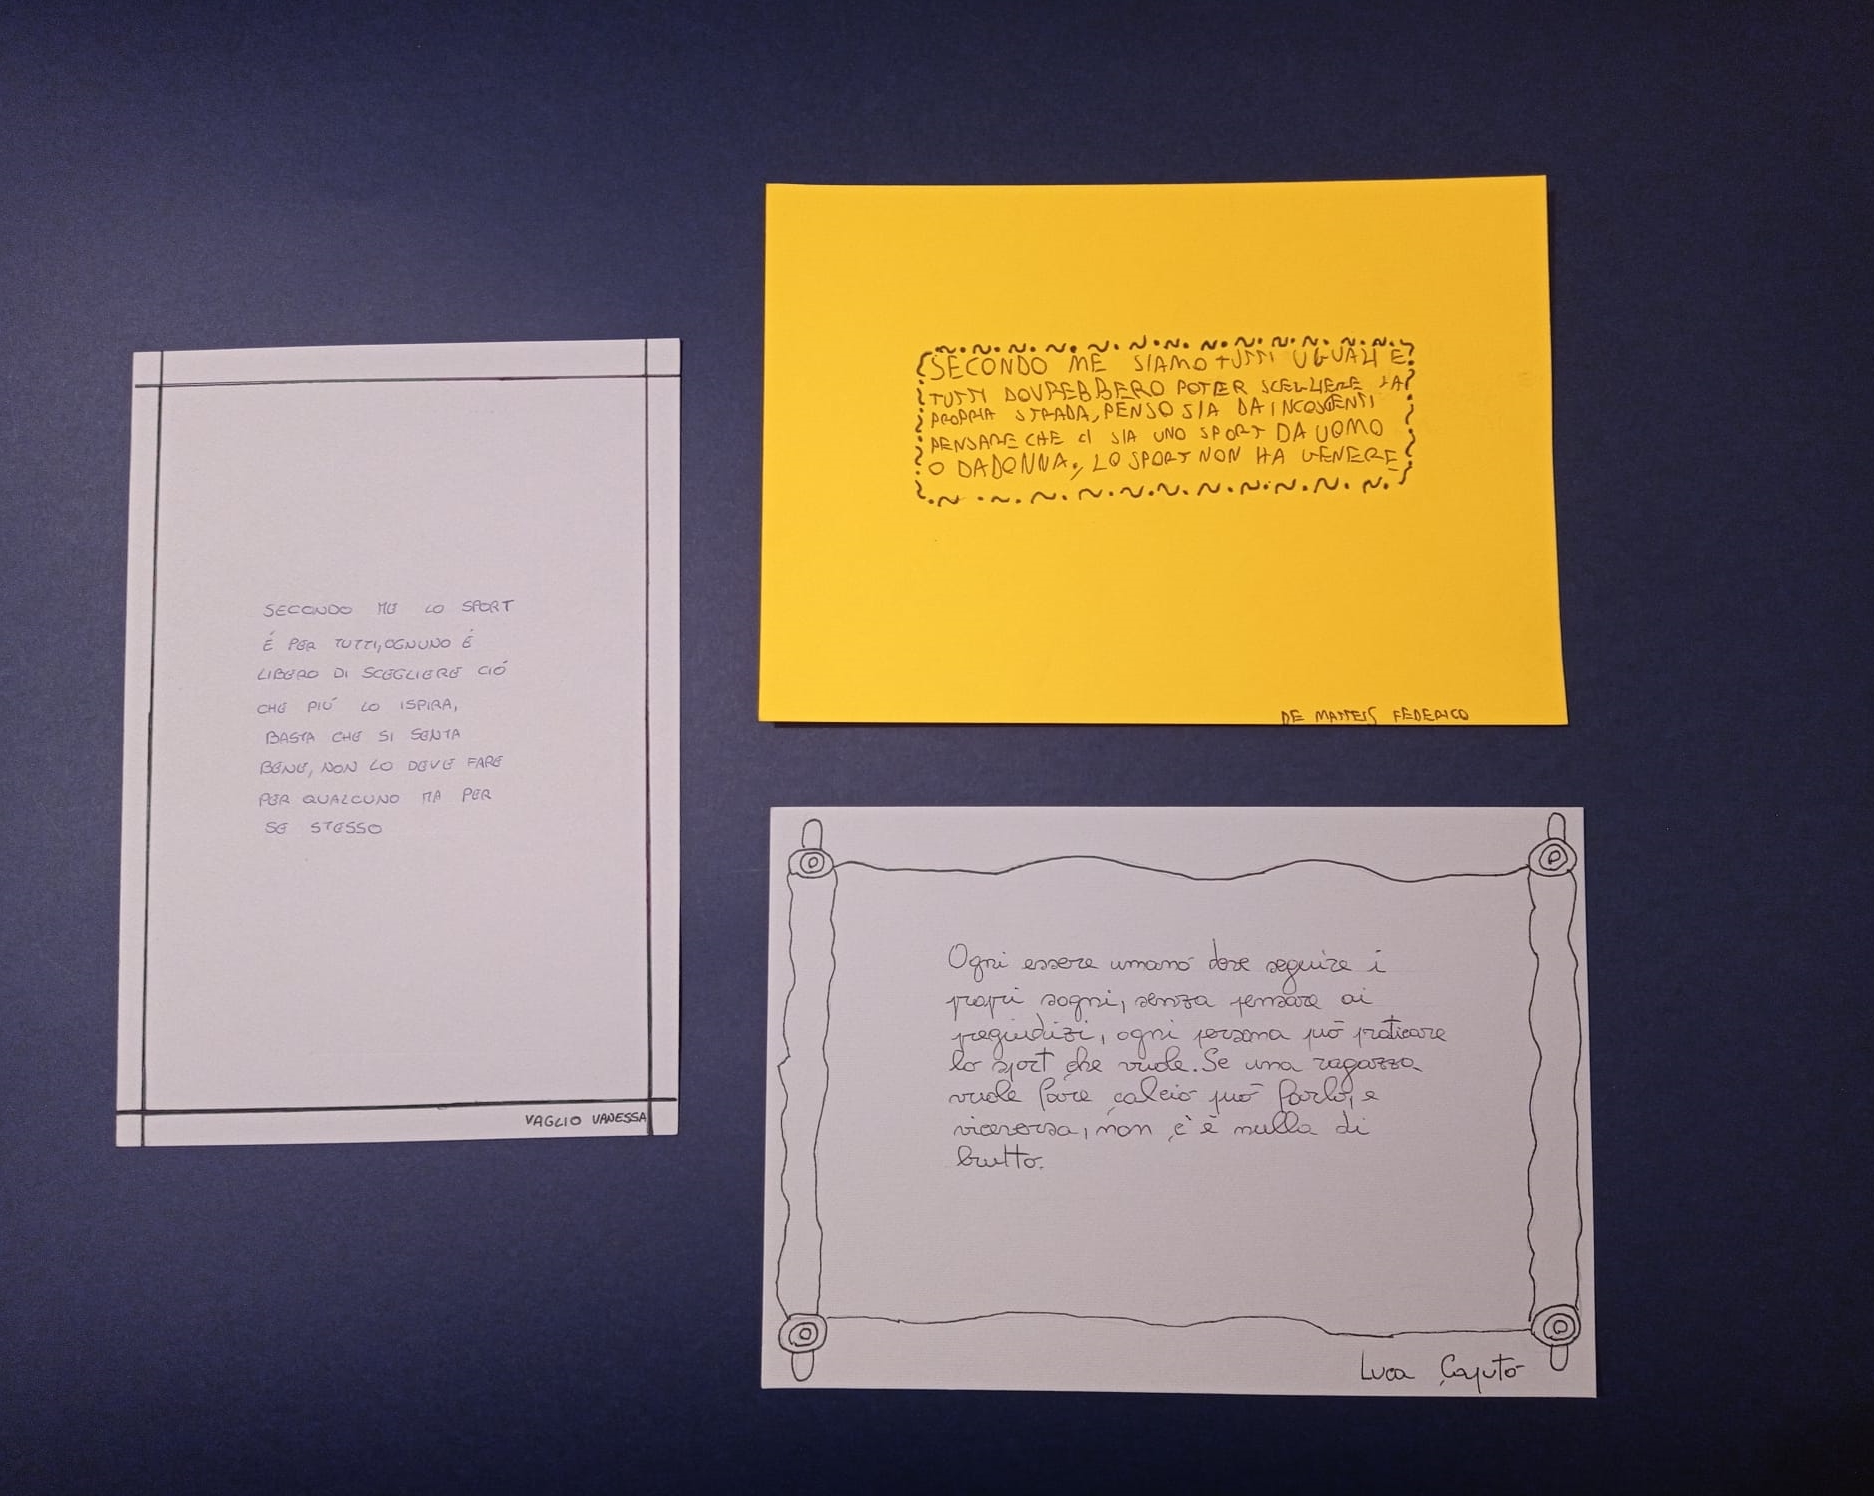 SECONDO ME LO SPORT
É PER TUTTI, OGNUNO É
LIBERO DI SCEGLIERE CIÓ
CHE PIÚ LO ISPIRA,
BASTA CHE SI SENTA
BENE, NON LO DEVE FARE
PER QUALCUNO MA PER
SE STESSO
VAGLIO VANESSA
SECONDO ME SIAMO TUTTI UGUALI E
TUTTI DOVREBBERO POTER SCEGLIERE LA
PROPRIA STRADA, PENSO SIA DA INCOSCENTI
PENSARE CHE CI SIA UNO SPORT DA UOMO
O DA DONNA, LO SPORT NON HA GENERE
DE MATTEIS FEDERICO
Ogni essere umano deve seguire i
propri sogni, senza pensare ai
pregiudizi, ogni persona può praticare
lo sport che vuole. Se una ragazza
vuole fare calcio può farlo, e
viceversa, non c'è nulla di
brutto.
Luca Caputo